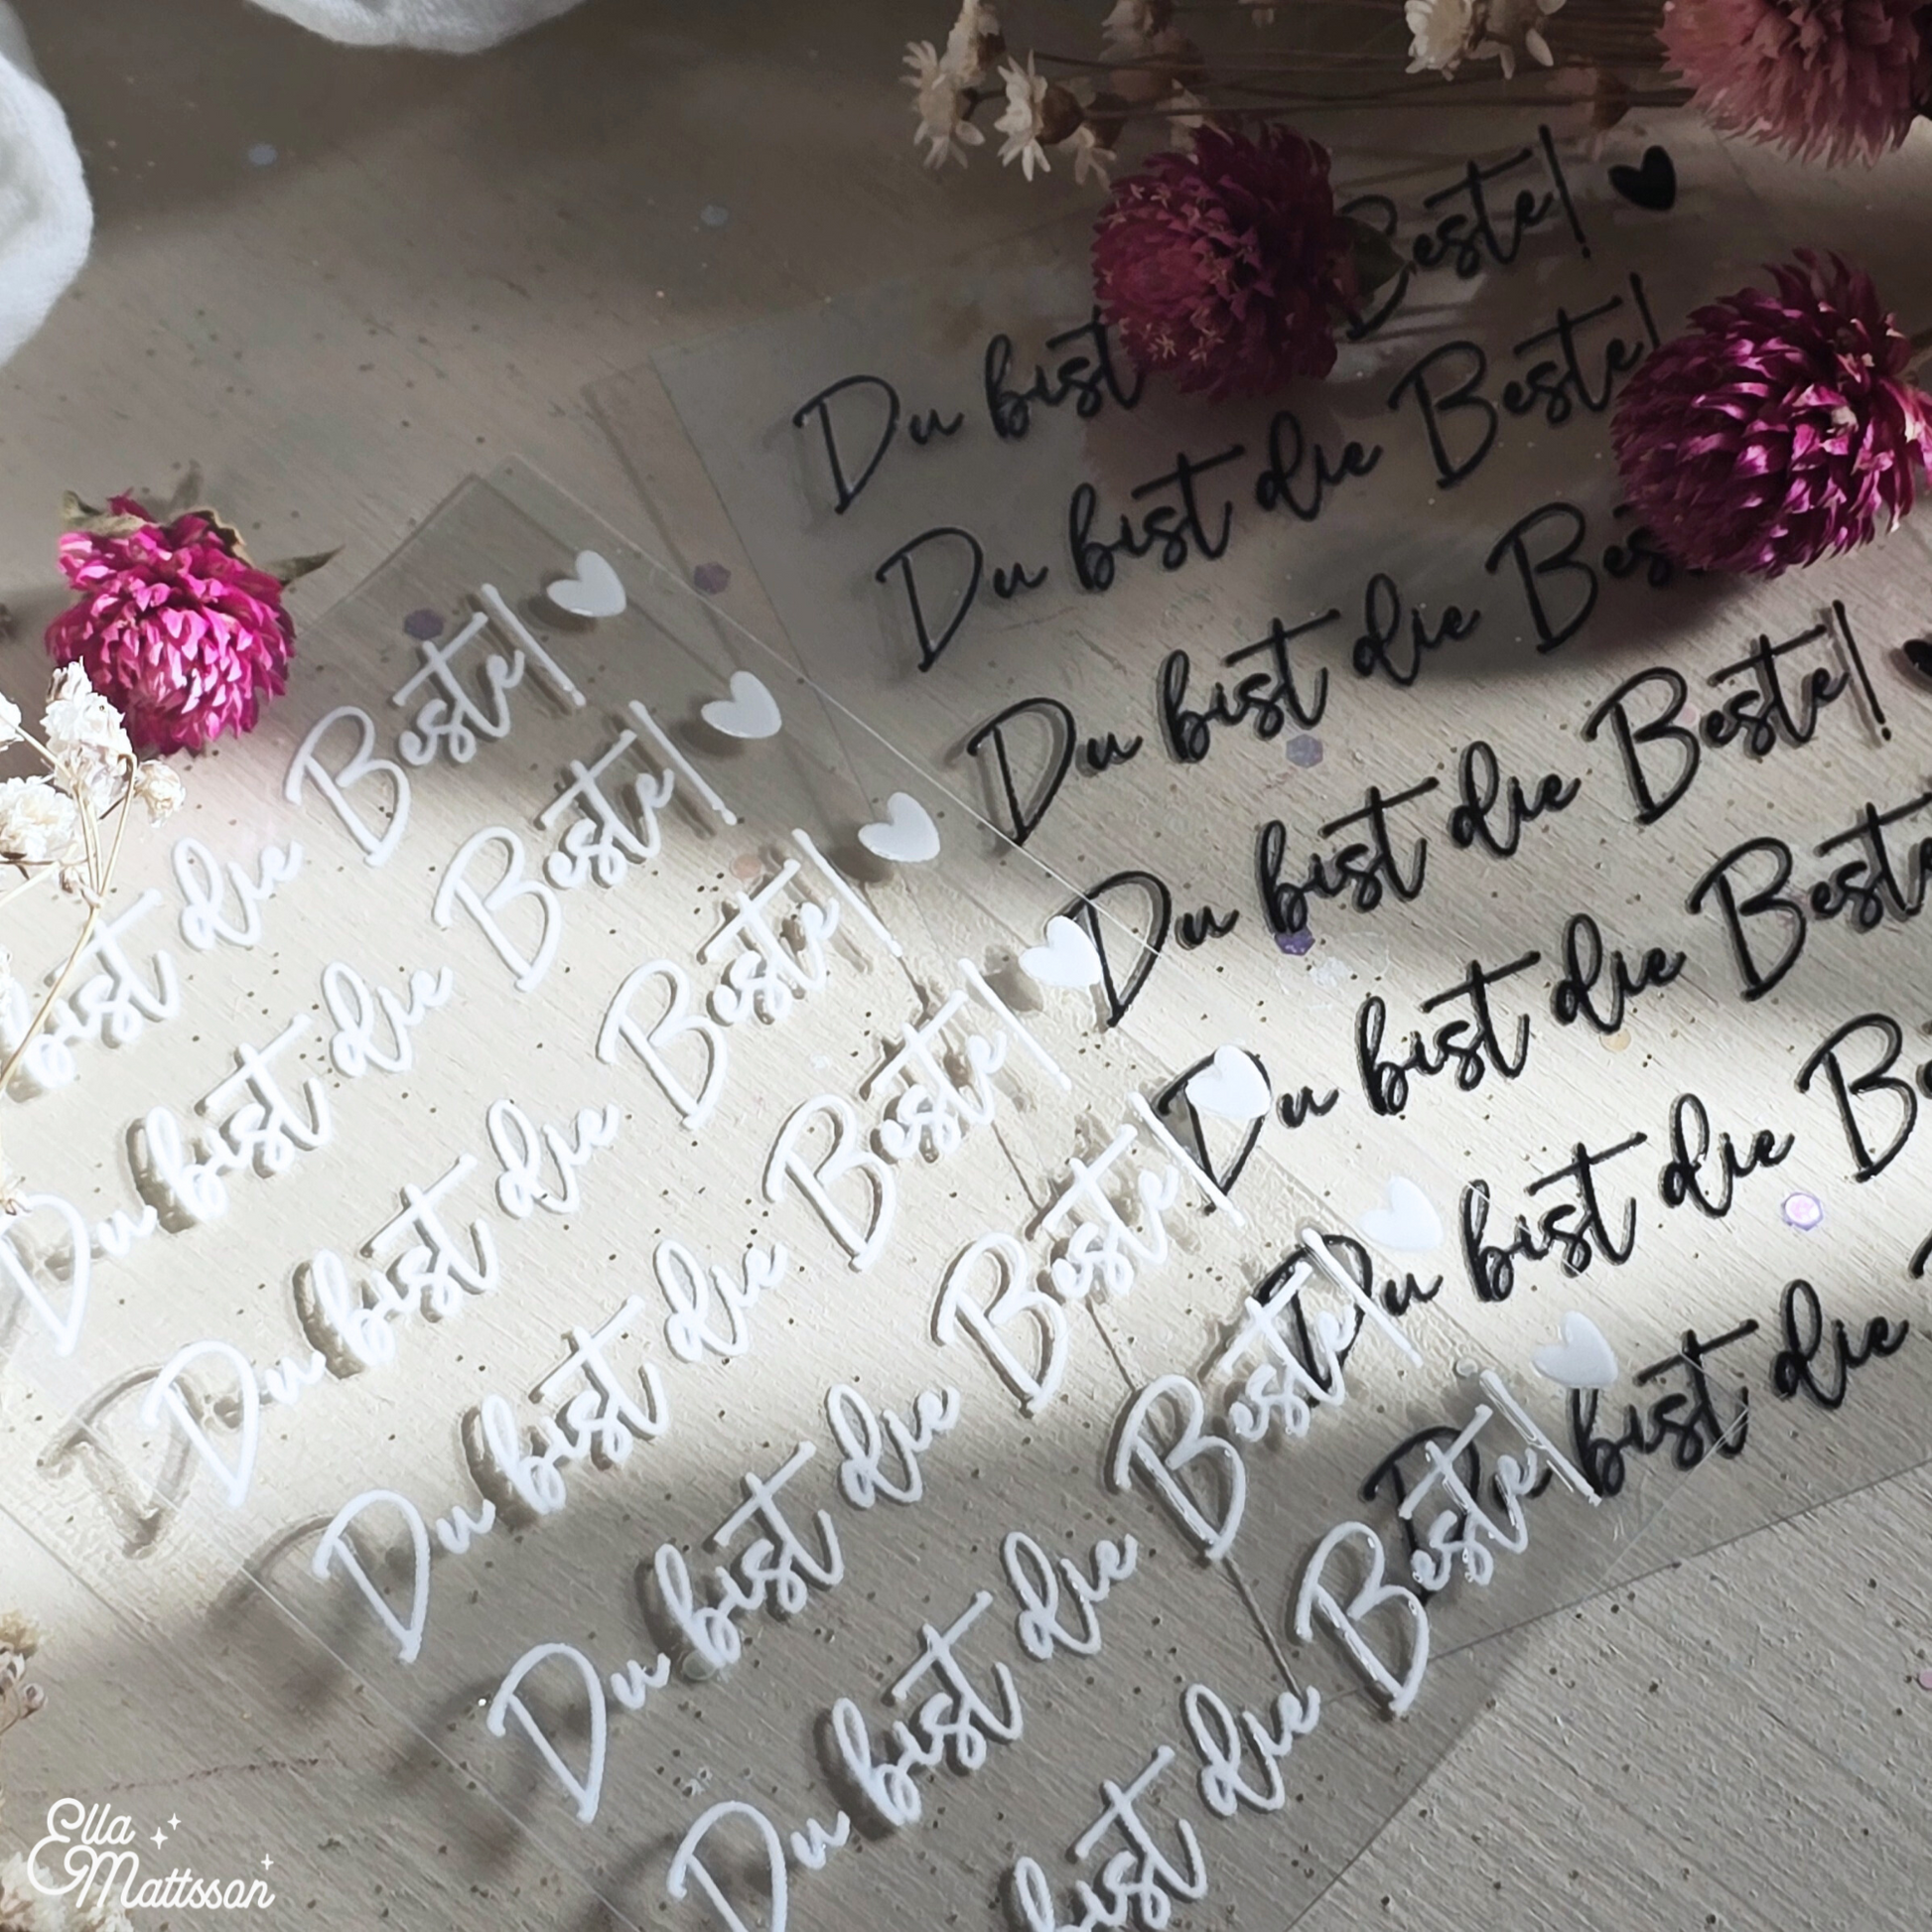 Du bist Beste!
Du bist die Beste!
Du bist die Bes
Du bist die Beste!
Du bist die Beste
Du bist die Be
Du bist die
bist die Beste!
Du bist die Beste!
Du bist die Beste!
Du bist die Beste!
Du bist die Beste!
Du bist die Beste!
bist die Beste!
Ella
Mattsson